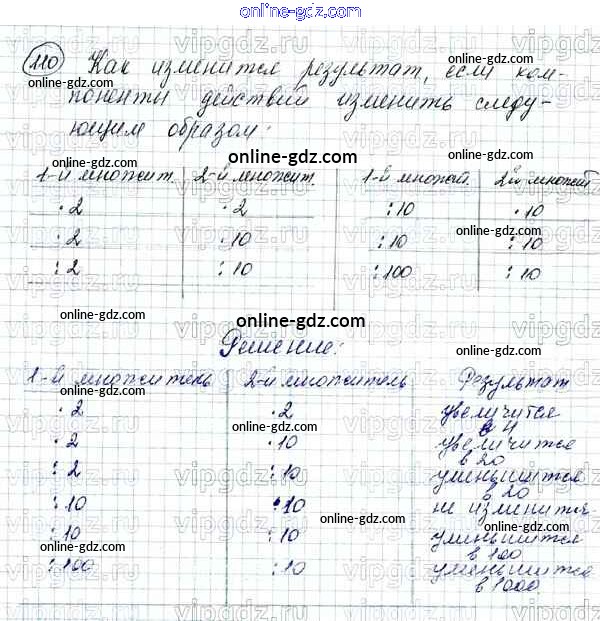 online-gdz.com
110 Как изменится результат, если ком-
поненты действий изменить следу-
ющим образом:
online-gdz.com
1-й множит. 2-й множит. 1-й множит. 2й множит
·2 ·2 :10 ·10
:2 ·10 :10 :10
:2 :10 :100 :10
online-gdz.com
Решение:
1-й множитель 2-й множитель Результат
·2 ·2 увеличится в 4
·2 ·10 увеличится в 20
:2 :10 уменьшится в 20
:10 ·10 не изменится
:10 :10 уменьшится в 100
:100 :10 уменьшится в 1000.
online-gdz.com